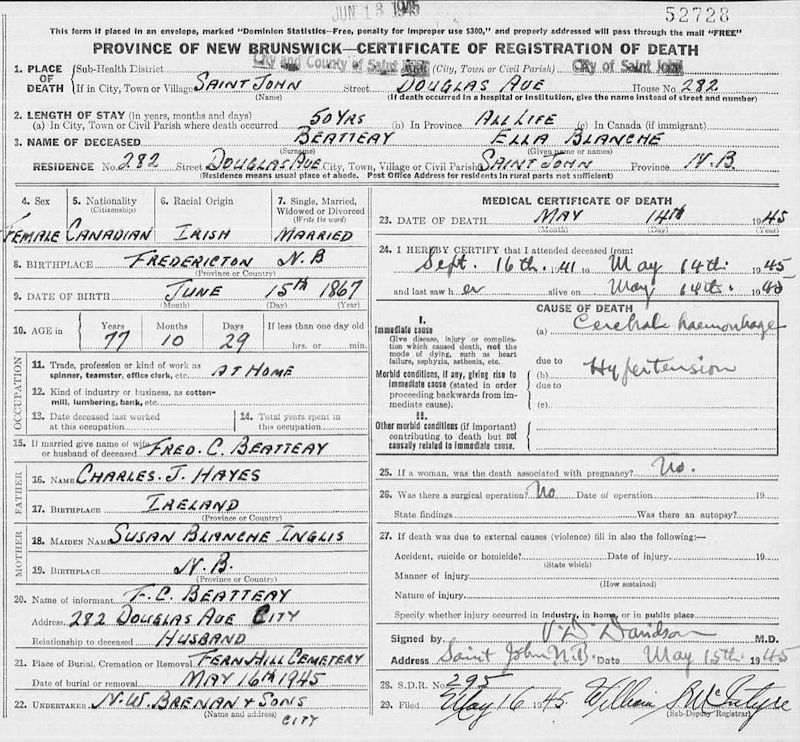 JUN 13 1945
52728
This form if placed in an envelope, marked "Dominion Statistics—Free, penalty for improper use $300," and properly addressed will pass through the mail "FREE"
PROVINCE OF NEW BRUNSWICK—CERTIFICATE OF REGISTRATION OF DEATH
1. PLACE OF DEATH Sub-Health District City and County of Saint John (City, Town or Civil Parish) City of Saint John
If in City, Town or Village SAINT JOHN Street DOUGLAS AVE House No. 282
(Name) (If death occurred in a hospital or institution, give the name instead of street and number)
2. LENGTH OF STAY (in years, months and days)
(a) In City, Town or Civil Parish where death occurred 50 YRS (b) In Province ALL LIFE (c) In Canada (if immigrant)
3. NAME OF DECEASED BEATTEAY ELLA BLANCHE
(Surname) (Given name or names)
RESIDENCE No. 282 Street DOUGLAS AVE City, Town, Village or Civil Parish SAINT JOHN Province N.B.
(Residence means usual place of abode. Post Office Address for residents in rural parts not sufficient)
4. Sex FEMALE
5. Nationality (Citizenship) CANADIAN
6. Racial Origin IRISH
7. Single, Married, Widowed or Divorced (Write the word) MARRIED
8. BIRTHPLACE FREDERICTON N.B
(Province or Country)
9. DATE OF BIRTH JUNE 15th 1867
(Month) (Day) (Year)
10. AGE in Years Months Days If less than one day old
77 10 29 hrs. or min.
OCCUPATION
11. Trade, profession or kind of work as spinner, teamster, office clerk, etc. AT HOME
12. Kind of industry or business, as cotton-mill, lumbering, bank, etc.
13. Date deceased last worked at this occupation
14. Total years spent in this occupation
15. If married give name of wife or husband of deceased FRED. C. BEATTEAY
FATHER
16. NAME CHARLES. J. HAYES
17. BIRTHPLACE IRELAND
(Province or Country)
MOTHER
18. MAIDEN NAME SUSAN BLANCHE INGLIS
19. BIRTHPLACE N.B.
(Province or Country)
20. Name of informant F. C. BEATTEAY
Address 282 DOUGLAS AVE CITY
Relationship to deceased HUSBAND
21. Place of Burial, Cremation or Removal FERN HILL CEMETERY
Date of burial or removal MAY 16th 1945
22. UNDERTAKER N. W. BRENAN & SONS
(Name and address) CITY
MEDICAL CERTIFICATE OF DEATH
23. DATE OF DEATH MAY 14th 1945
(Month) (Day) (Year)
24. I HEREBY CERTIFY that I attended deceased from:
Sept. 16th. 1941 to May 14th. 1945
and last saw her alive on May 14th. 1945
CAUSE OF DEATH
I.
Immediate cause
Give disease, injury or complication which caused death, not the mode of dying, such as heart failure, asphyxia, asthenia, etc.
(a) Cerebral haemorrhage
due to
Morbid conditions, if any, giving rise to immediate cause (stated in order proceeding backwards from immediate cause).
(b) Hypertension
due to
(c)
II.
Other morbid conditions (if important) contributing to death but not causally related to immediate cause.
25. If a woman, was the death associated with pregnancy? No.
26. Was there a surgical operation? No Date of operation 19
State findings Was there an autopsy?
27. If death was due to external causes (violence) fill in also the following:—
Accident, suicide or homicide? Date of injury 19
(State which)
Manner of injury
(How sustained)
Nature of injury
Specify whether injury occurred in industry, in home, or in public place
Signed by V. D. Davidson M.D.
Address Saint John N.B. Date May 15th. 1945
28. S.D.R. No. 295
29. Filed May 16 1945. William S. McIntyre
(Sub-Deputy Registrar)